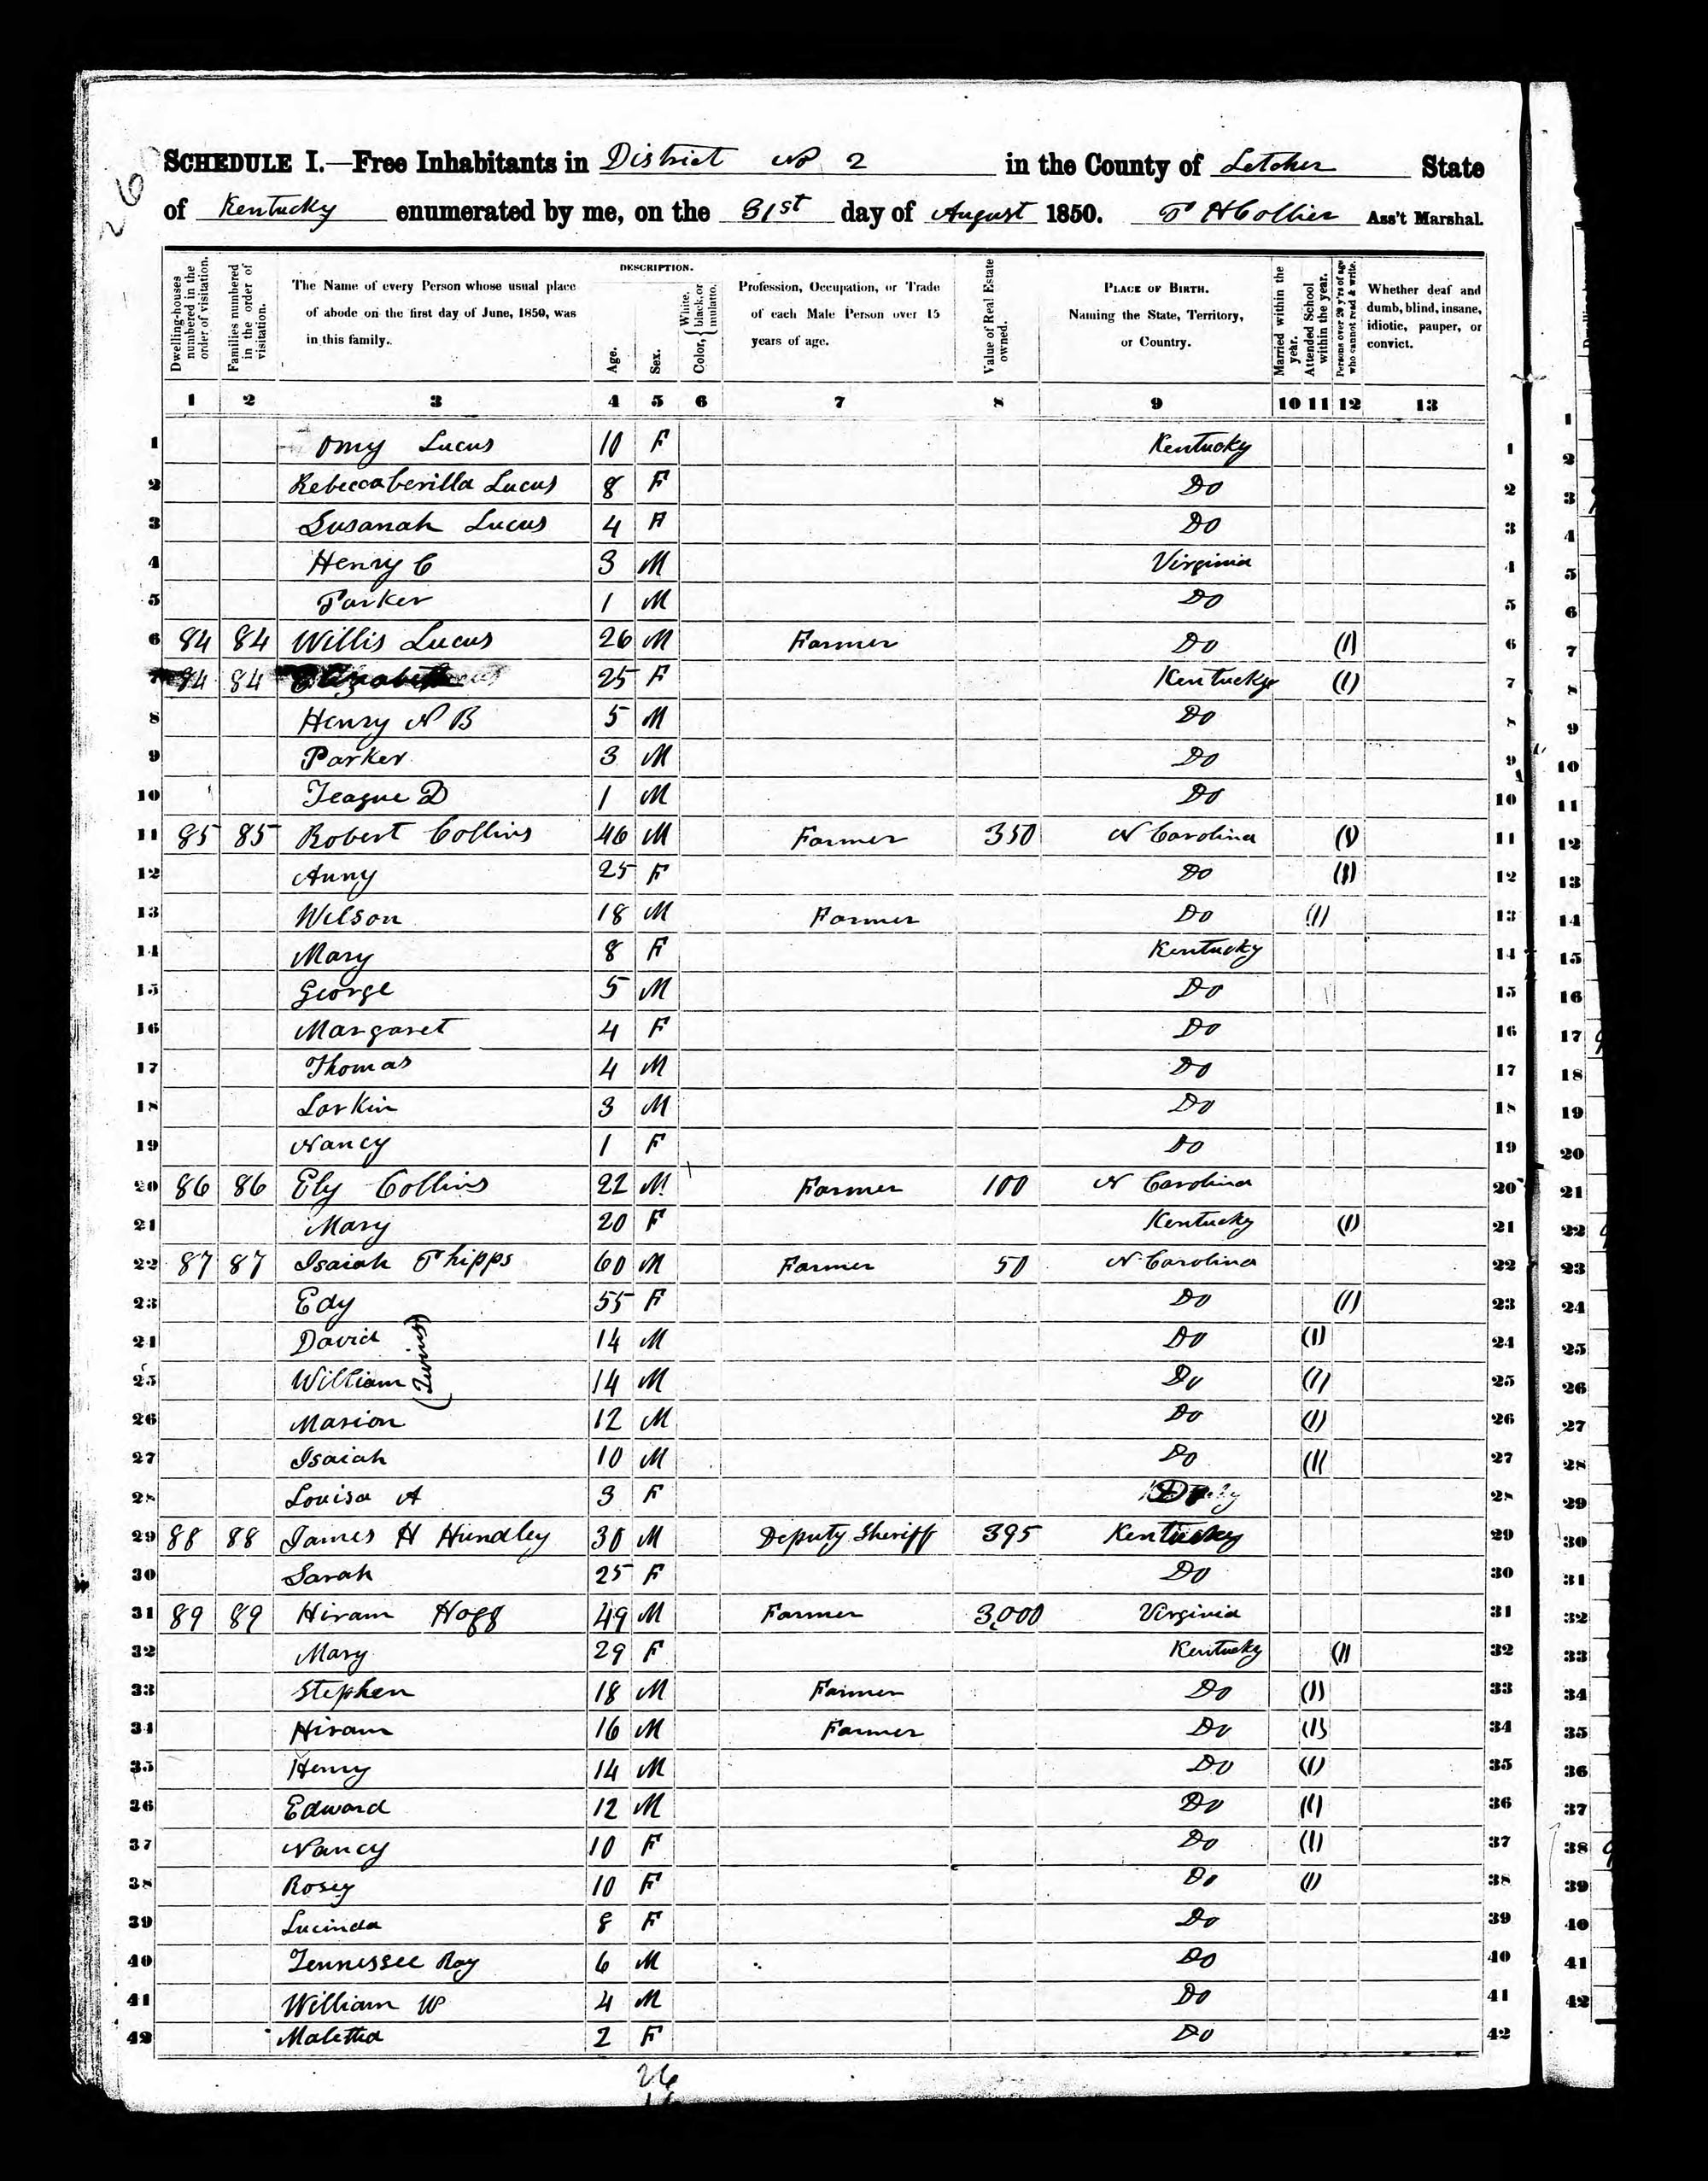 260
SCHEDULE I.—Free Inhabitants in District No 2 in the County of Letcher State
of Kentucky enumerated by me, on the 31st day of August 1850. T H Collier Ass't Marshal.
Dwelling-houses numbered in the order of visitation.
Families numbered in the order of visitation.
The Name of every Person whose usual place of abode on the first day of June, 1850, was in this family.
DESCRIPTION.
Age.
Sex.
Color, { White, black, or mulatto.
Profession, Occupation, or Trade of each Male Person over 15 years of age.
Value of Real Estate owned.
PLACE OF BIRTH. Naming the State, Territory, or Country.
Married within the year.
Attended School within the year.
Persons over 20 y'rs of age who cannot read & write.
Whether deaf and dumb, blind, insane, idiotic, pauper, or convict.
1 2 3 4 5 6 7 8 9 10 11 12 13
1 Omy Lucus 10 F Kentucky 1
2 Rebecca Lucus 8 F Do 2
3 Susanah Lucus 4 F Do 3
4 Henry C 3 M Virginia 4
5 Parker 1 M Do 5
6 84 84 Willis Lucus 26 M Farmer Do (1) 6
7 84 84 Elizabeth 25 F Kentucky (1) 7
8 Henry N B 5 M Do 8
9 Parker 3 M Do 9
10 Teague D 1 M Do 10
11 85 85 Robert Collins 46 M Farmer 350 N Carolina (1) 11
12 Anny 25 F Do (1) 12
13 Wilson 18 M Farmer Do (1) 13
14 Mary 8 F Kentucky 14
15 George 5 M Do 15
16 Margaret 4 F Do 16
17 Thomas 4 M Do 17
18 Larkin 3 M Do 18
19 Nancy 1 F Do 19
20 86 86 Ely Collins 22 M Farmer 100 N Carolina 20
21 Mary 20 F Kentucky (1) 21
22 87 87 Isaiah Phipps 60 M Farmer 50 N Carolina 22
23 Edy 55 F Do (1) 23
24 David 14 M Do (1) 24
(Twins)
25 William 14 M Do (1) 25
26 Marion 12 M Do (1) 26
27 Isaiah 10 M Do (1) 27
28 Louisa A 3 F Do 28
29 88 88 James H Hundley 30 M Deputy Sheriff 395 Kentucky 29
30 Sarah 25 F Do 30
31 89 89 Hiram Hogg 49 M Farmer 3,000 Virginia 31
32 Mary 29 F Kentucky (1) 32
33 Stephen 18 M Farmer Do (1) 33
34 Hiram 16 M Farmer Do (1) 34
35 Henry 14 M Do (1) 35
36 Edward 12 M Do (1) 36
37 Nancy 10 F Do (1) 37
38 Rosey 10 F Do (1) 38
39 Lucinda 8 F Do 39
40 Tennessee Ray 6 M Do 40
41 William W 4 M Do 41
42 Maletha 2 F Do 42
26
16
1
2
3
4
5
6
7
8
9
10
11
12
13
14
15
16
17
18
19
20
21
22
23
24
25
26
27
28
29
30
31
32
33
34
35
36
37
38
39
40
41
42